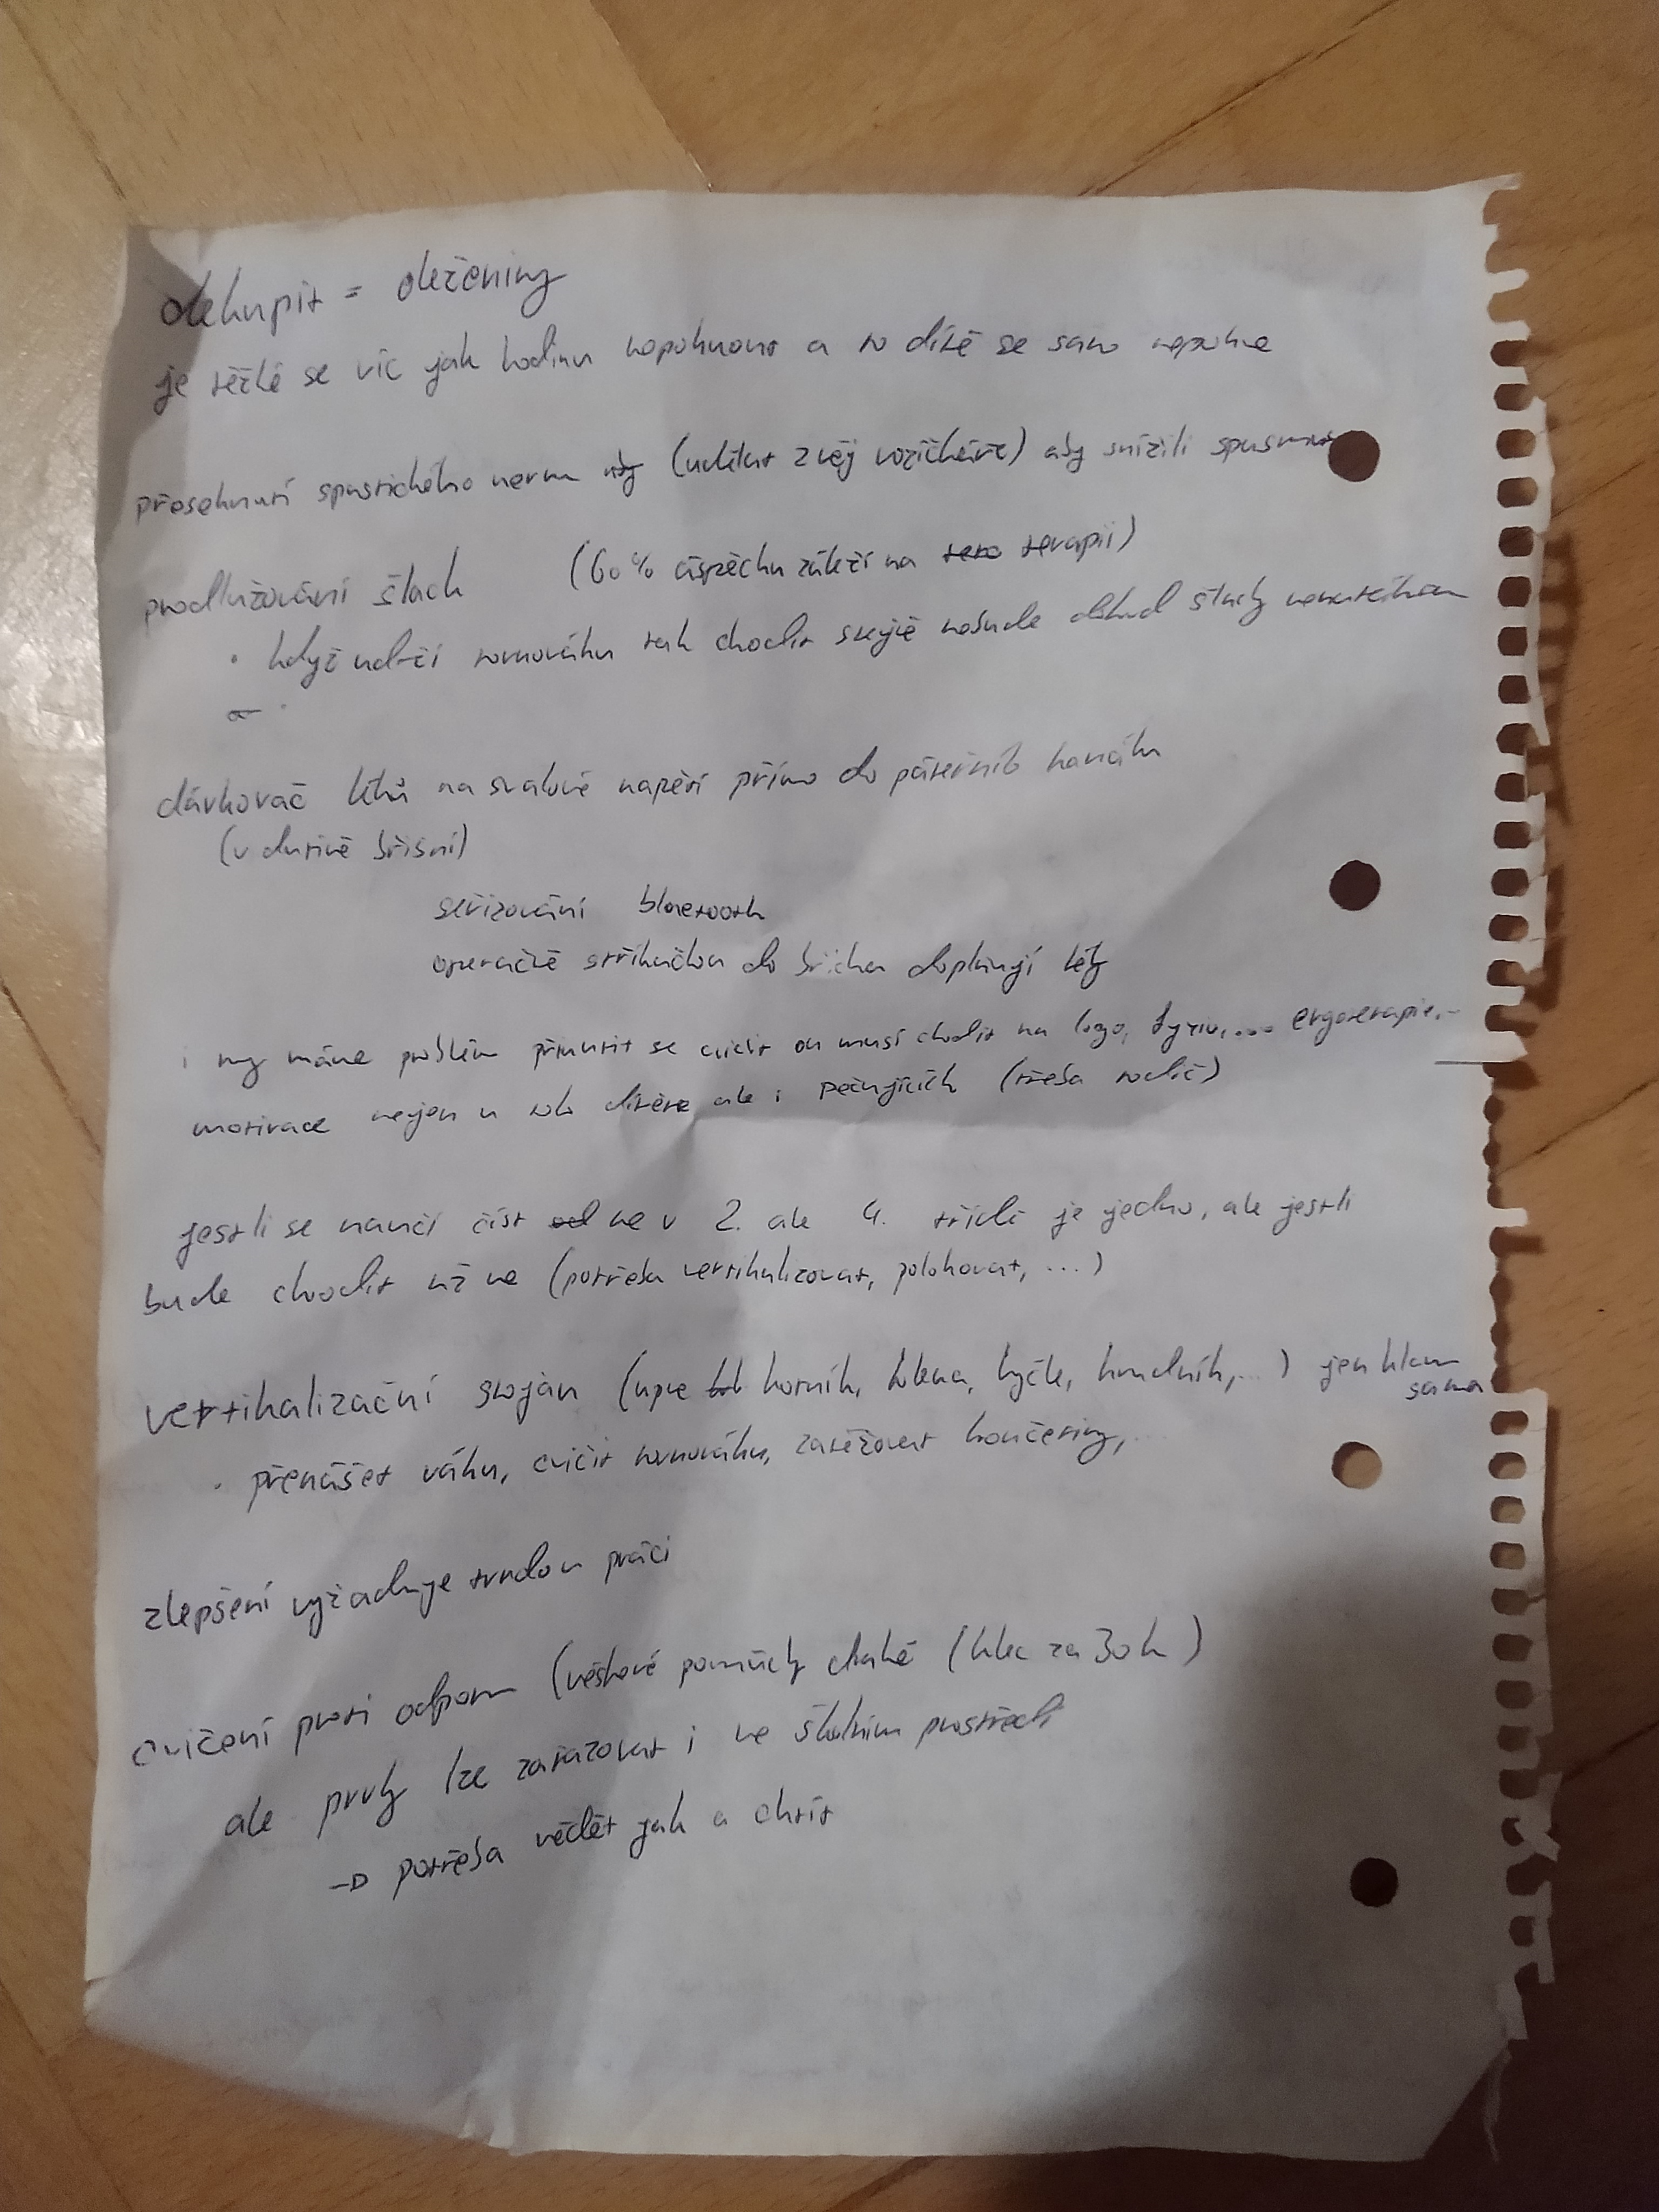 dekupit = deženiny
je těžké se víc jak hodinu nepohnout a to dítě se samo nepohne
přeseknutí spastického nervu (udělat z něj vozíčkáře) aby snížili spasmus
prodlužování šlach (60% úspěchu záleží na terapii)
• když udrží rovnováhu tak chodit stejně nebude dokud šlachy
dávkovač léků na svalové napětí přímo do páteřního kanálu
(v dutině břišní)
seřizování bluetooth
operačně stříkačkou do břicha doplňují léky
i my máme problém přinutit se cvičit on musí chodit na logo, fyzio, ... ergoterapie...
motivace nejen u toho dítěte ale i pečujících (třeba rodič)
jestli se naučí číst ne v 2. ale 4. třídě je jedno, ale jestli
bude chodit už ne (potřeba vertikalizovat, polohovat, ...)
vertikalizační stojan (upne kotník, kolena, kyčle, hrudník, ...) jen hlava
sama
• přenášet váhu, cvičit rovnováhu, zatěžovat končetiny, ...
zlepšení vyžaduje tvrdou práci
cvičení proti odporu (věškové pomůcky drahé (klec za 30k)
ale prvky lze zařazovat i ve školním prostředí
→ potřeba vědět jak a chtít